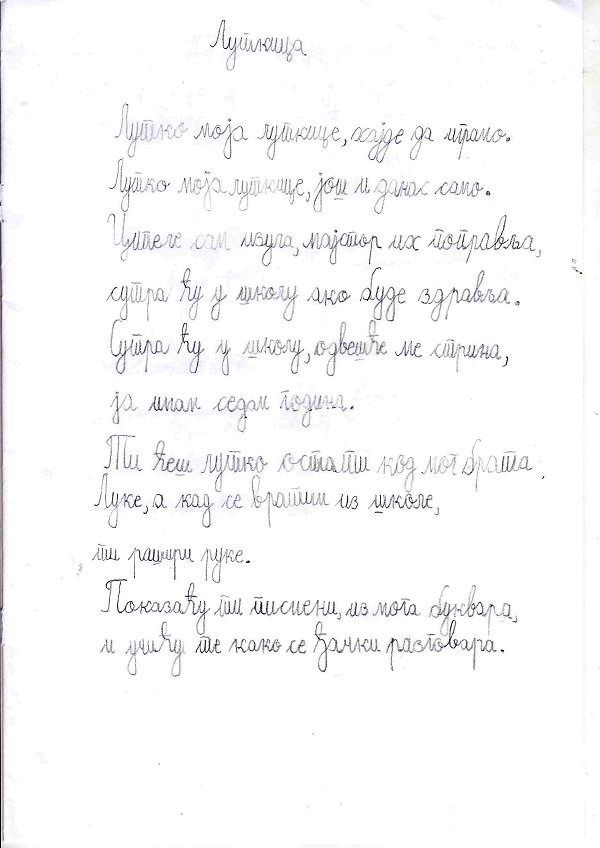 Луткица
Лутко моја луткице, хајде да играмо.
Лутко моја луткице, још и данас само.
Ципеле сам изула, мајстор их поправља,
сутра ћу у школу ако буде здравља.
Сутра ћу у школу, одвешће ме стрина,
ја имам седам година.
Ти ћеш лутко остати код мог брата
Луке, а кад се вратим из школе,
ти рашири руке.
Показаћу ти писмени, из мога буквара,
и учићу те како се ђачки разговара.